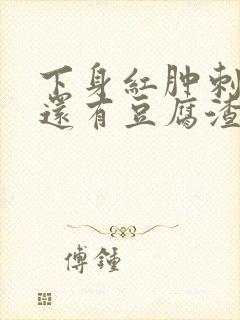 下身紅肿刺
還有豆腐渣
傅鍾